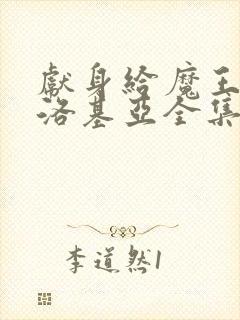 獻身給魔王伊
洛基亞全集
李道然1